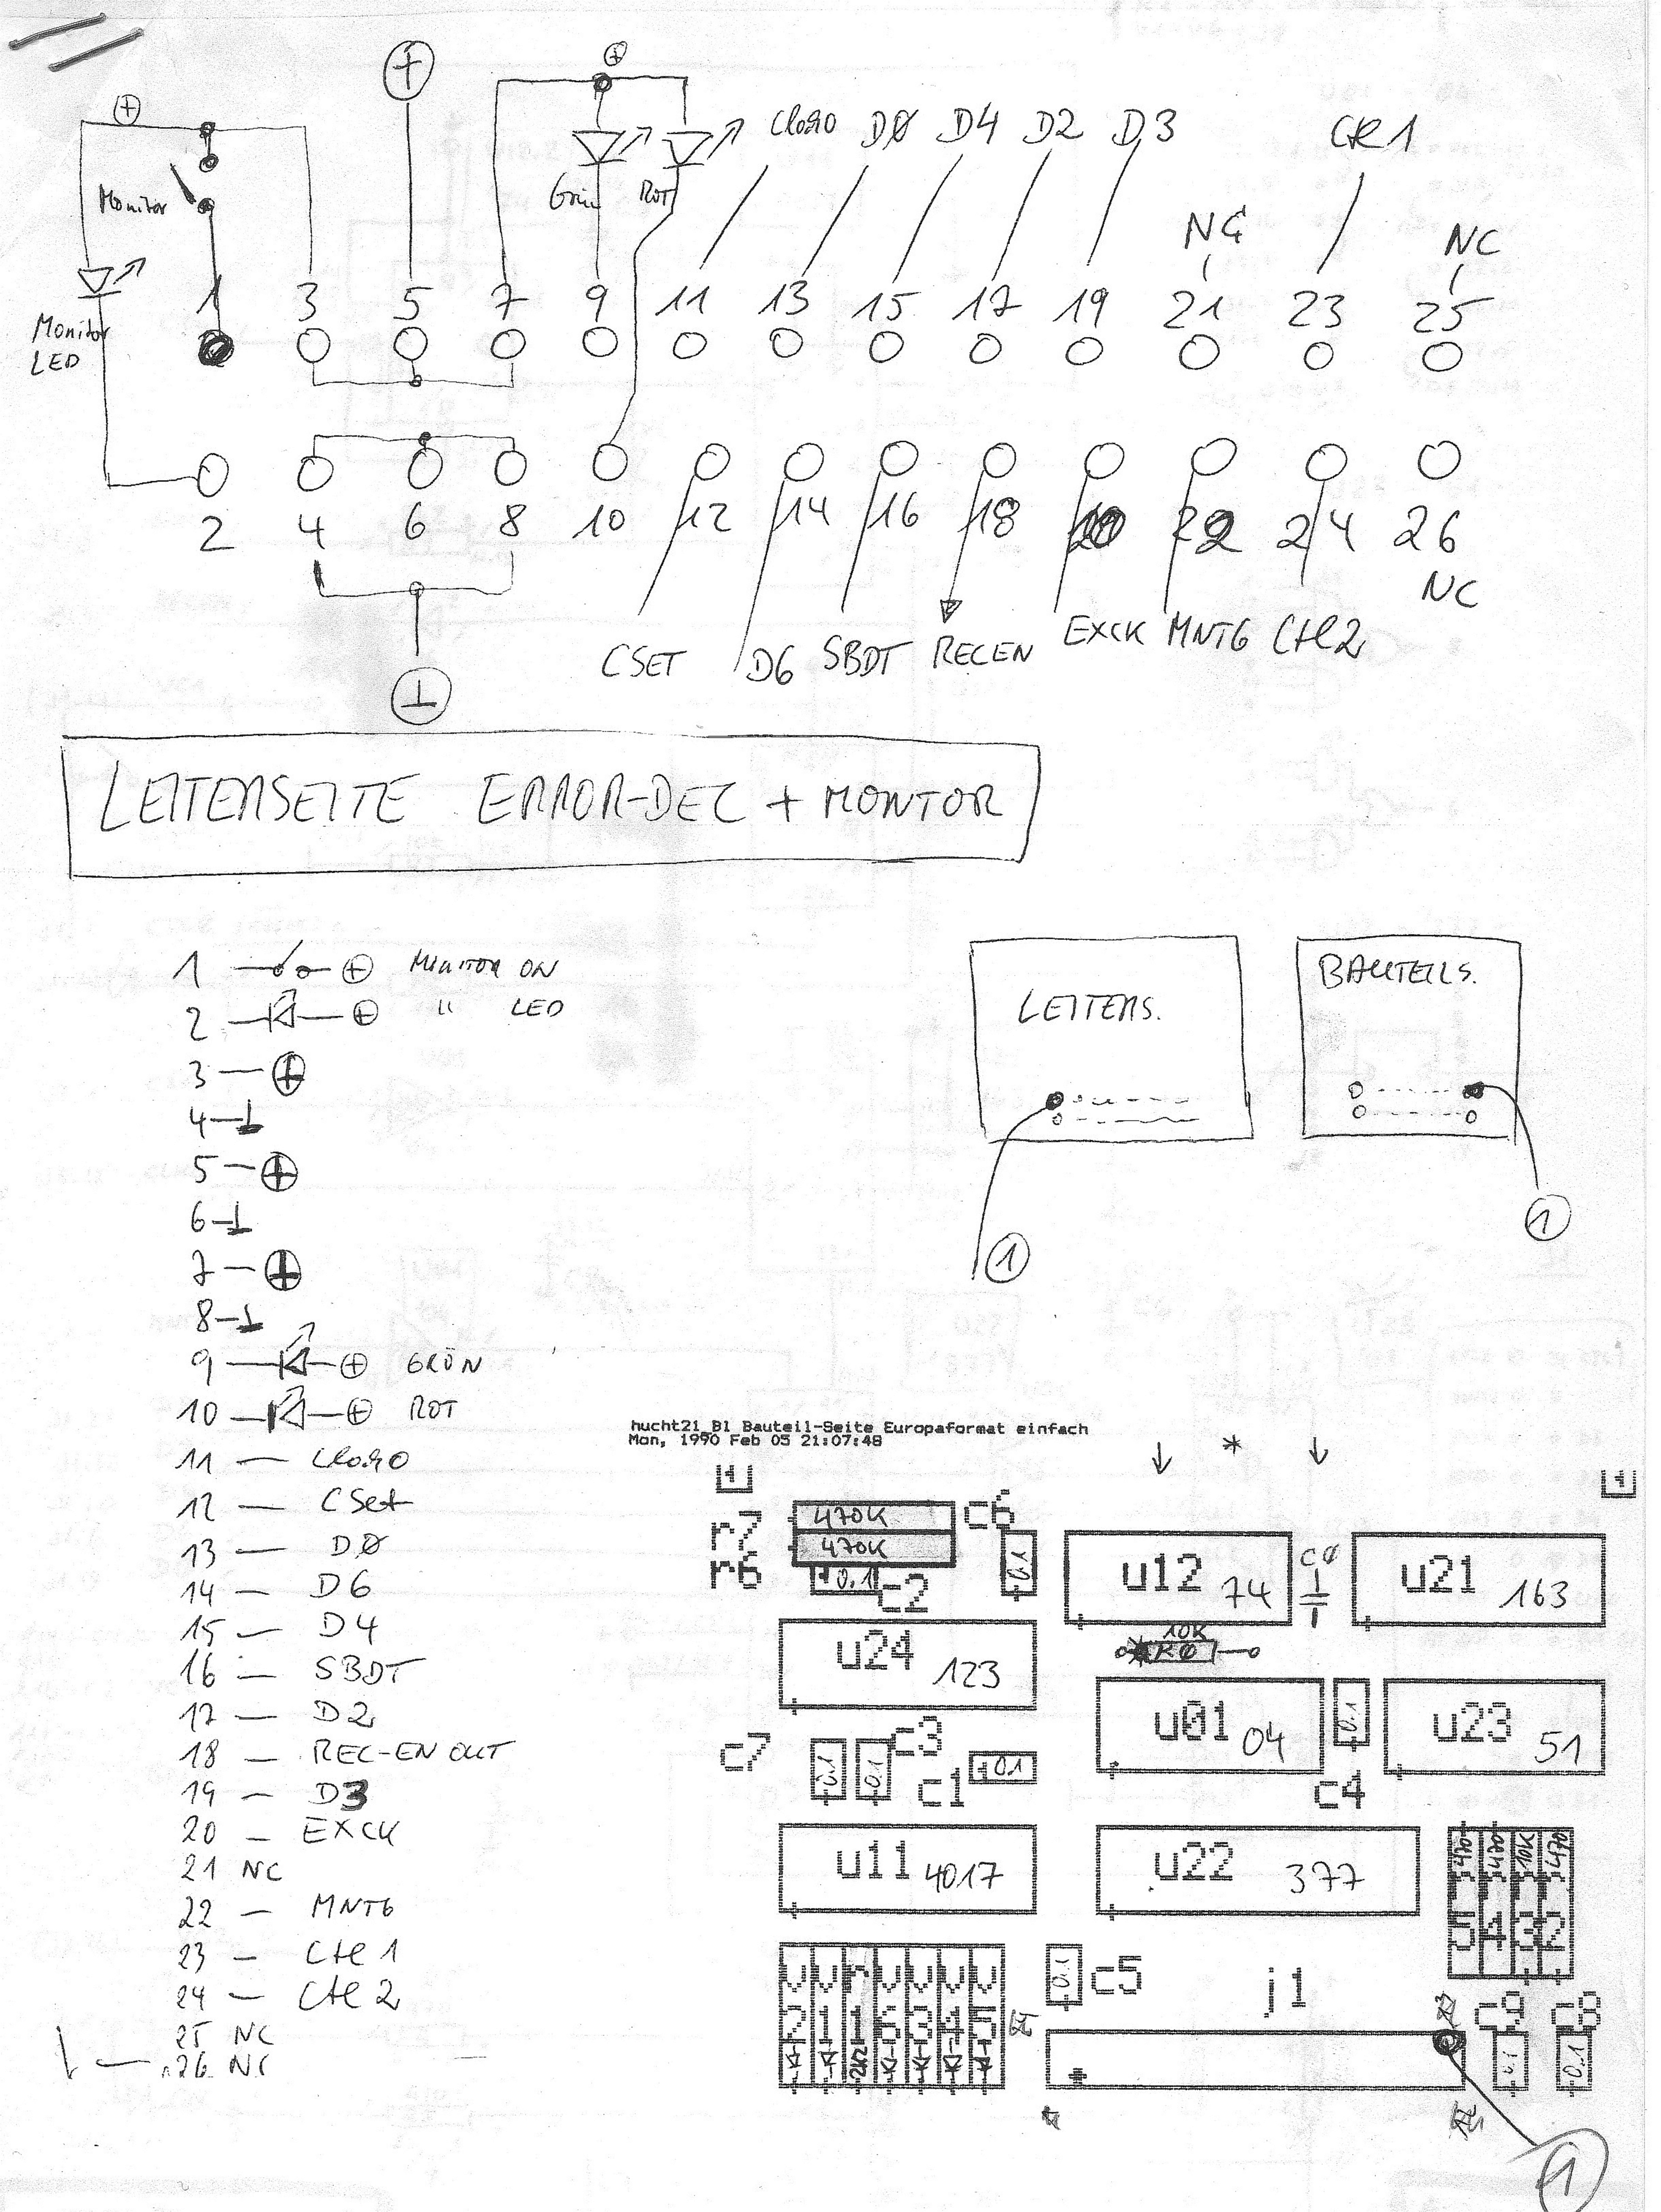 ⊕ ⊕
⊕ Cl0.90 D0 D4 D2 D3 CTL1
Monitor Grün ROT
NC NC
1 3 5 7 9 11 13 15 17 19 21 23 25
Monitor
LED
2 4 6 8 10 12 14 16 18 20 22 24 26
NC
CSET D6 SBDT RECEN EXCK MNT6 CTL2
LEITERSEITE ERROR-DEC + MONITOR
1 ⊕ MONITOR ON
2 ⊕ " LED
3 — ⊕
4 — ⊥
5 — ⊕
6 — ⊥
7 — ⊕
8 — ⊥
9 ⊕ GRÜN
10 ⊕ ROT
11 —
12 — CSet
13 — D0
14 — D6
15 — D4
16 — SBDT
17 — D2
18 — REC-EN OUT
19 — D3
20 — EXCK
21 NC
22 — MNT6
23 — Ctl 1
24 — Ctl 2
25 NC
26 NC
LEITERS.
BAUTEILS.
1
1
hucht21_B1 Bauteil-Seite Europaformat einfach
Mon, 1990 Feb 05 21:07:48
*
r7 470K c6
r6 470K 0.1
0.1 c2
u12 74 C0 u21 163
10K
R0
u24 123
u01 04 0.1 u23 51
c7 0.1 0.1 c3
c1 0.1 c4
u11 4017 u22 377
470 470 10K 470
5 4 3 2
v2 v1 r1 v6 v3 v4 v5
2K2
0.1 c5 j1
c9 c8
0.1 0.1
1